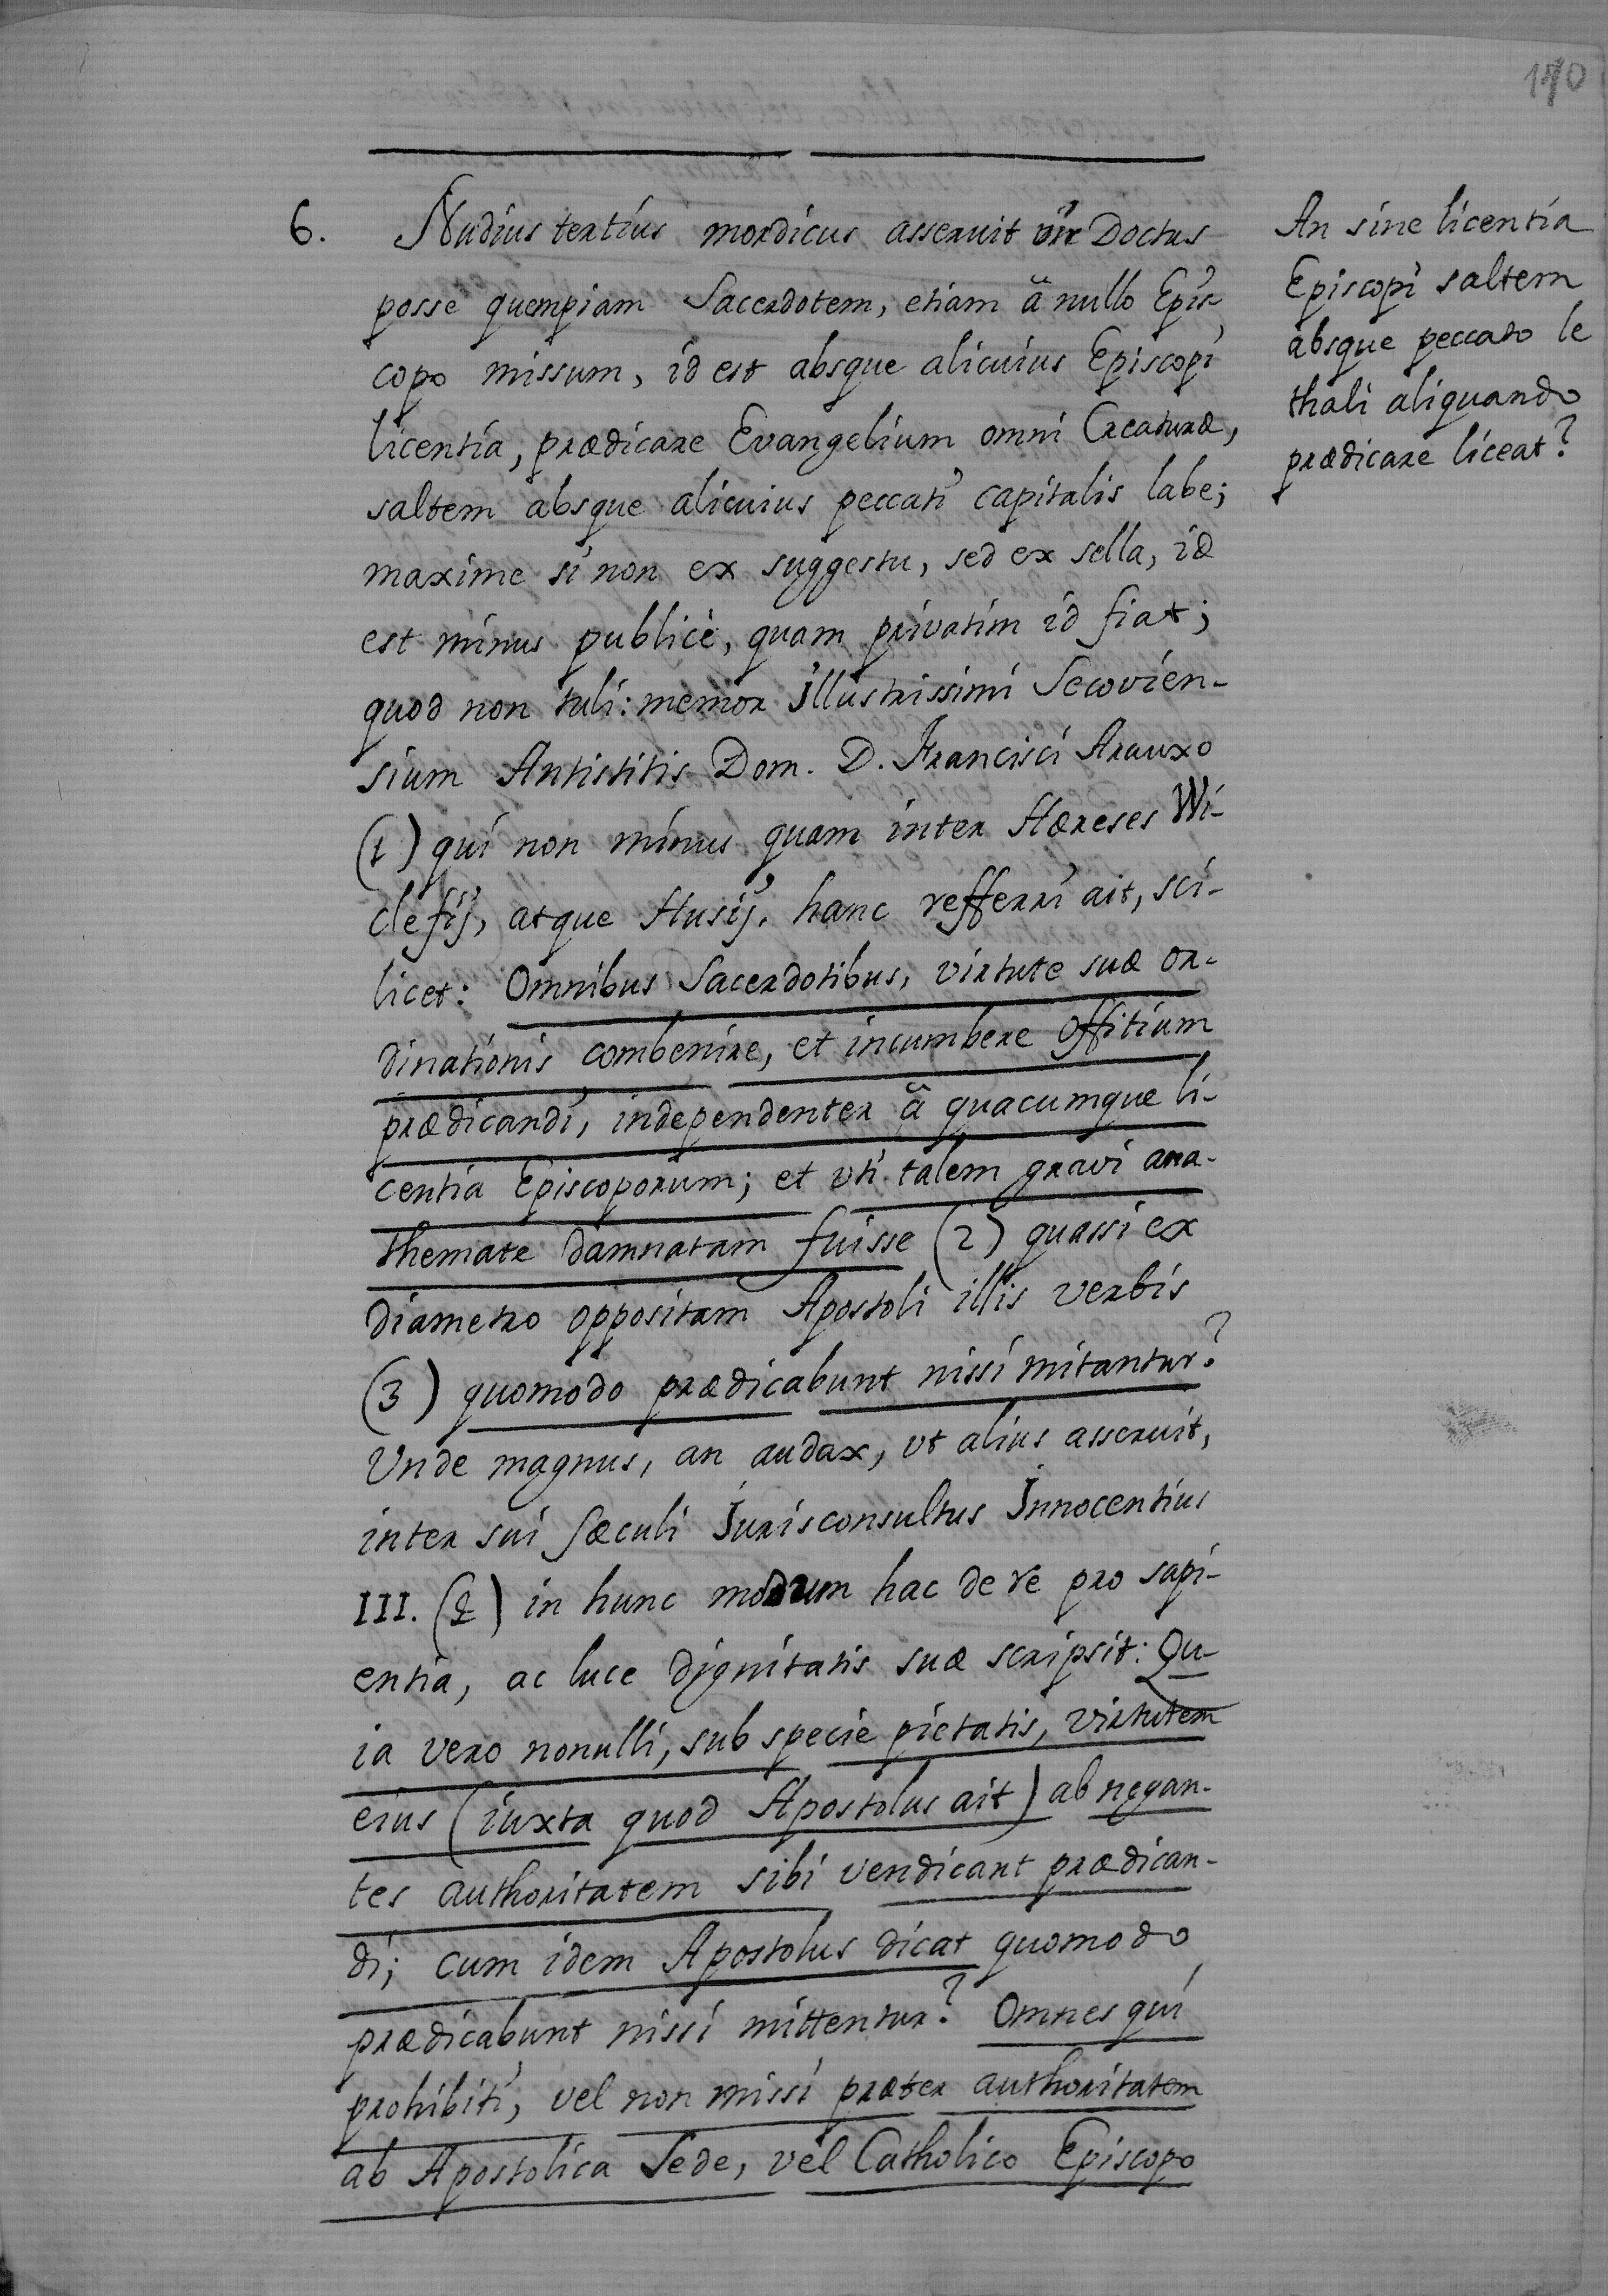 170
6. Nudius tertius mordicus asseruit vir Doctus
posse quempiam Sacerdotem, etiam â nullo Epis-
copo missum, id est absque alicuius Episcopi
licentia, prædicare Evangelium omni Creaturæ,
saltem absque alicuius peccati capitalis labe;
maxime si non ex suggestu, sed ex sella, id
est minus publicè, quam privatim id fiat;
quod non tuli: memor illustrissimi Secovien-
sium Antistitis Dom. D. Francisci Arauxo
(1) qui non minus quam inter Hæreses Wi-
clefij, atque Husij, hanc refferri ait, sci-
licet: Omnibus Sacerdotibus, virtute suæ or-
dinationis combenire, et incumbere offitium
prædicandi, independenter â quacumque li-
centia Episcoporum; et vti talem gravi ana-
themate damnatam fuisse (2) quassi ex
diametro oppositam Apostoli illis verbis
(3) quomodo prædicabunt nissi mitantur?
Unde magnus, an audax, vt alius asseruit,
inter sui sæculi Jurisconsultus Innocentius
III. (4) in hunc modum hac de re pro sapi-
entia, ac luce dignitatis suæ scripsit: Qu-
ia vero nonulli, sub specie pietatis, virtutem
eius (iuxta quod Apostolus ait) abnegan-
tes authoritatem sibi vendicant prædican-
di; cum idem Apostolus dicat quomodo
prædicabunt nissi mittentur? Omnes qui
prohibiti, vel non missi præter authoritatem
ab Apostolica Sede, vel Catholico Episcopo
An sine licentia
Episcopi saltem
absque peccato le
thali aliquando
prædicare liceat?